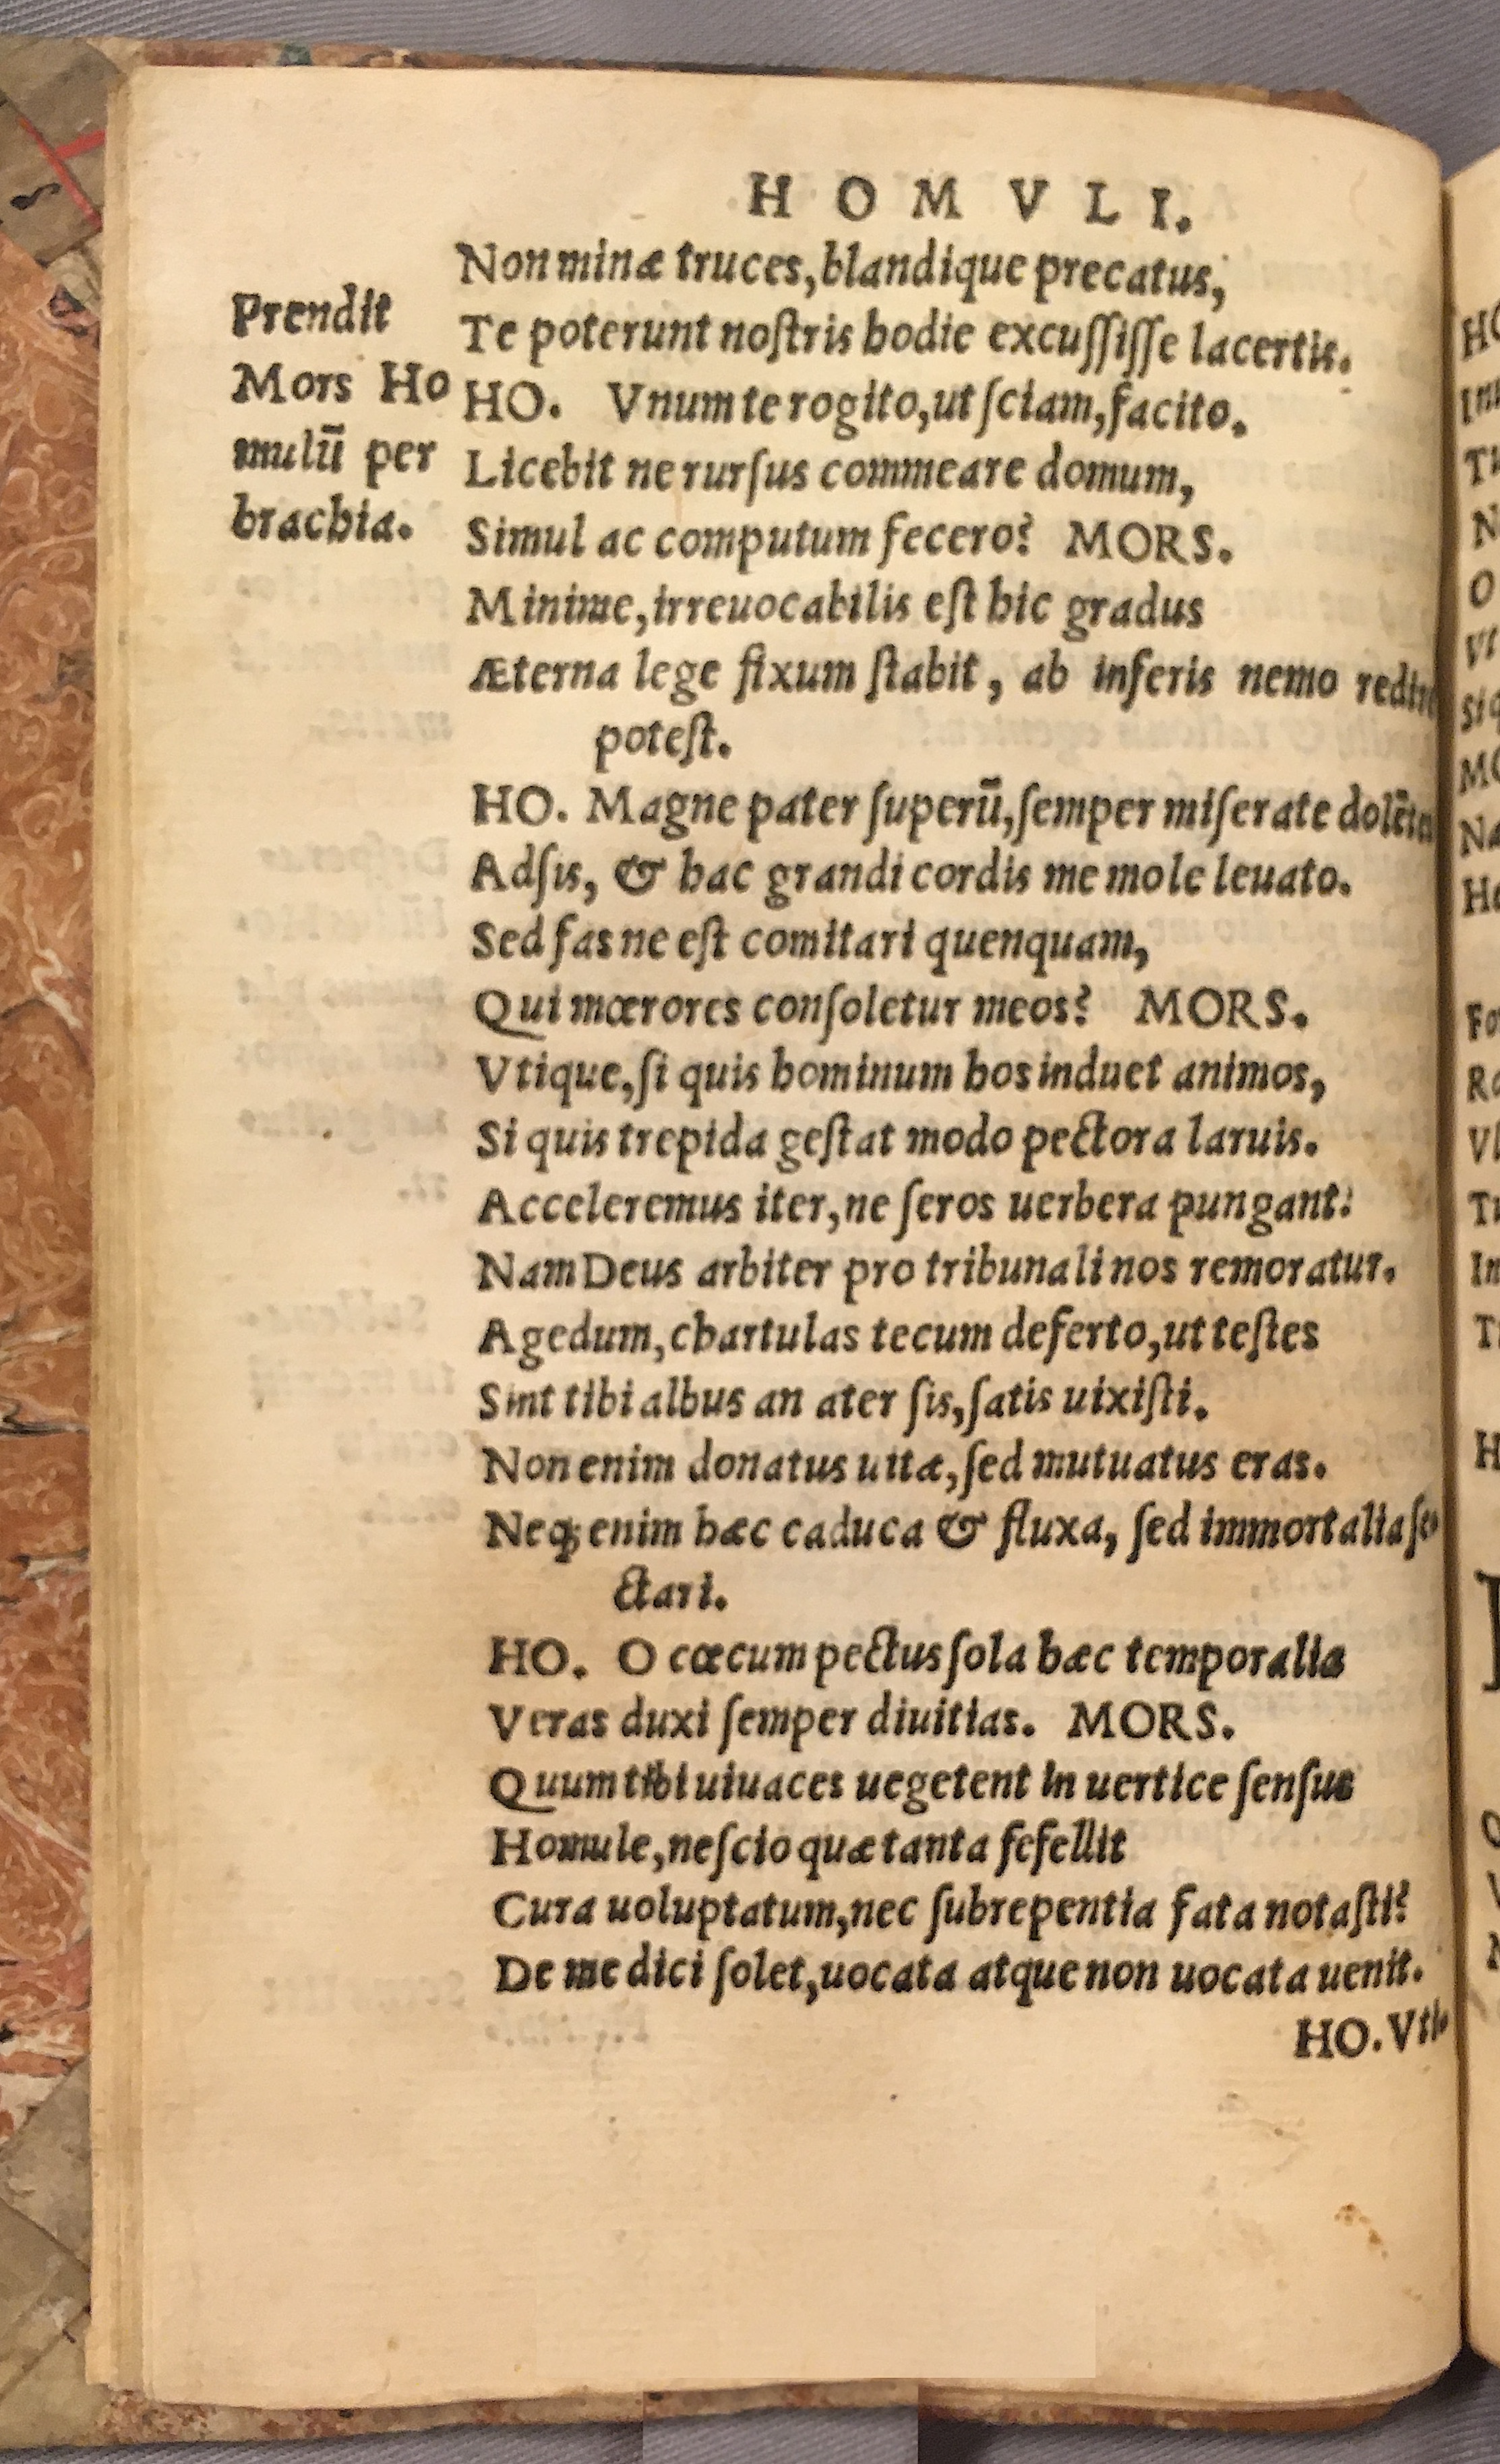 HOMVLI.
Non minæ truces, blandique precatus,
Te poterunt noſtris hodie excuſſiſſe lacertis.
Prendit
Mors Ho
mulū per
brachia.
HO. Vnum te rogito, ut ſciam, facito.
Licebit ne rurſus commeare domum,
Simul ac computum fecero? MORS.
Minime, irreuocabilis eſt hic gradus
Æterna lege fixum ſtabit, ab inferis nemo
poteſt.
HO. Magne pater ſuperū, ſemper miſerate
Adſis, & hac grandi cordis me mole leuato.
Sed fas ne eſt comitari quenquam,
Qui mœrores conſoletur meos? MORS.
Vtique, ſi quis hominum hos induet animos,
Si quis trepida geſtat modo pectora laruis.
Acceleremus iter, ne ſeros uerbera pungant:
Nam Deus arbiter pro tribunali nos remoratur.
Agedum, chartulas tecum deferto, ut teſtes
Sint tibi albus an ater ſis, ſatis uixiſti.
Non enim donatus uitæ, ſed mutuatus eras.
Neq; enim hæc caduca & fluxa, ſed immortalia
ctari.
HO. O cœcum pectus ſola hæc temporalia
Veras duxi ſemper diuitias. MORS.
Quum tibi uiuaces uegetent in uertice ſenſus
Homule, neſcio quæ tanta fefellit
Cura uoluptatum, nec ſubrepentia fata notaſti?
De me dici ſolet, uocata atque non uocata uenit.
HO.